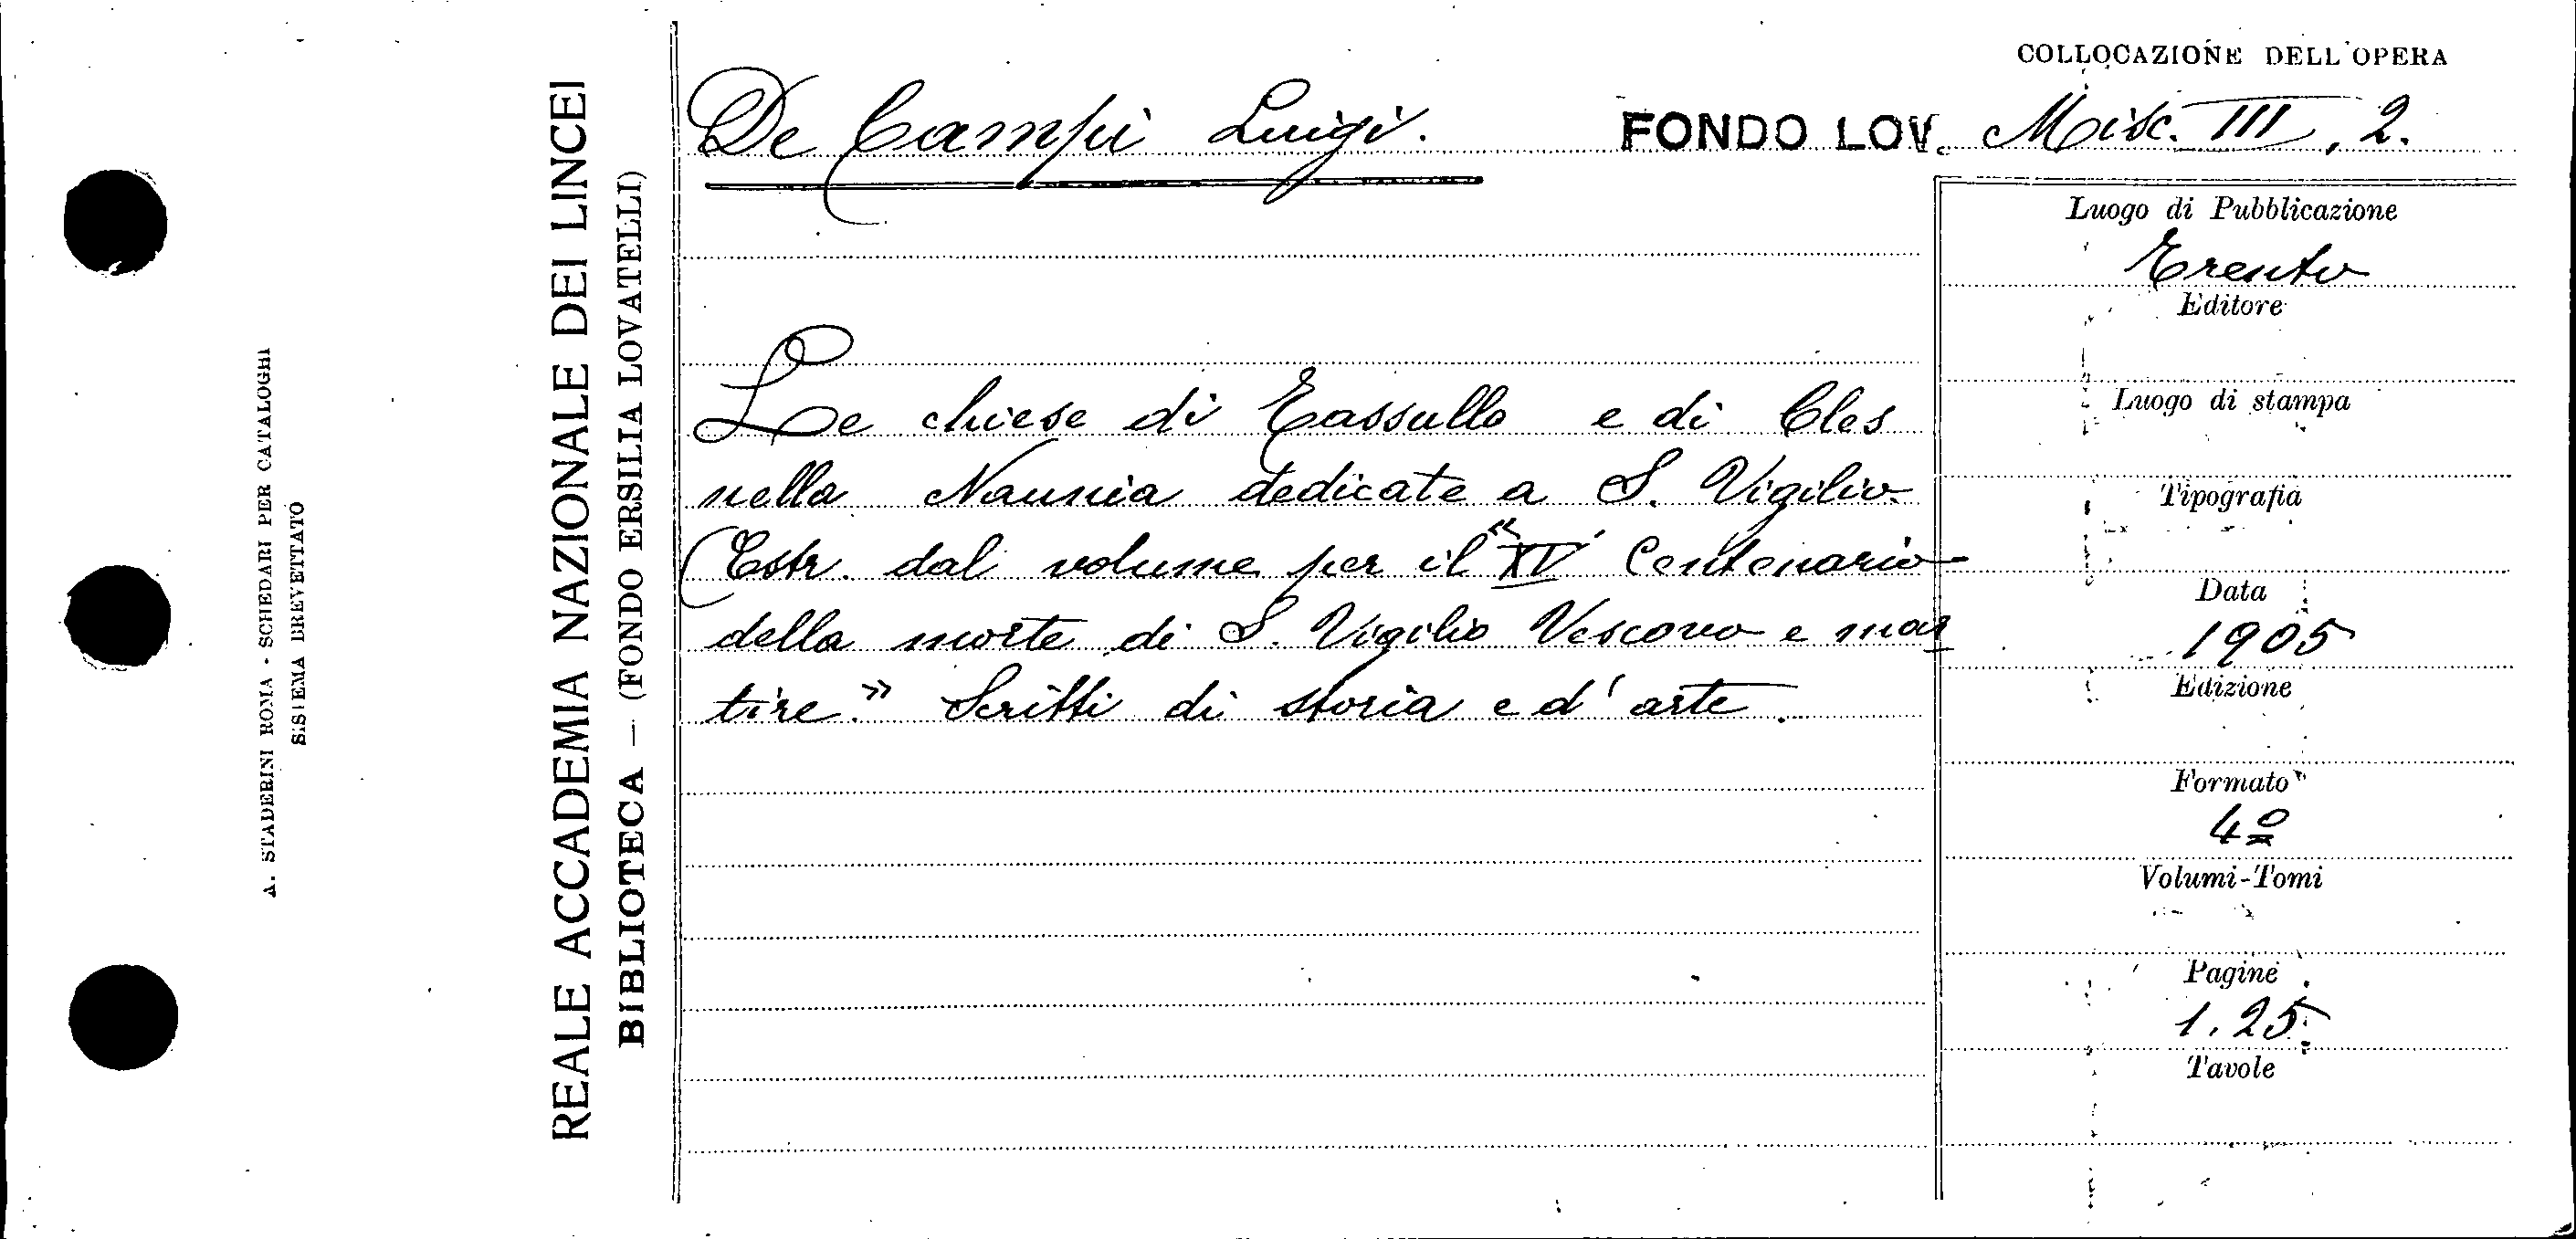 A. STADERINI ROMA - SCHEDARI PER CATALOGHI
SISTEMA BREVETTATO
REALE ACCADEMIA NAZIONALE DEI LINCEI
BIBLIOTECA — (FONDO ERSILIA LOVATELLI)
De Campi Luigi.
COLLOCAZIONE DELL'OPERA
FONDO LOV. Misc. III, 2.
Le chiese di Tassullo e di Cles
nella Naunia dedicate a S. Vigilio
(Estr. dal volume per il "XV Centenario
della morte di S. Vigilio Vescovo e mar
tire." Scritti di storia e d'arte.
Luogo di Pubblicazione
Trento
Editore
Luogo di stampa
Tipografia
Data
1905
Edizione
Formato
4º
Volumi-Tomi
Pagine
1.25
Tavole